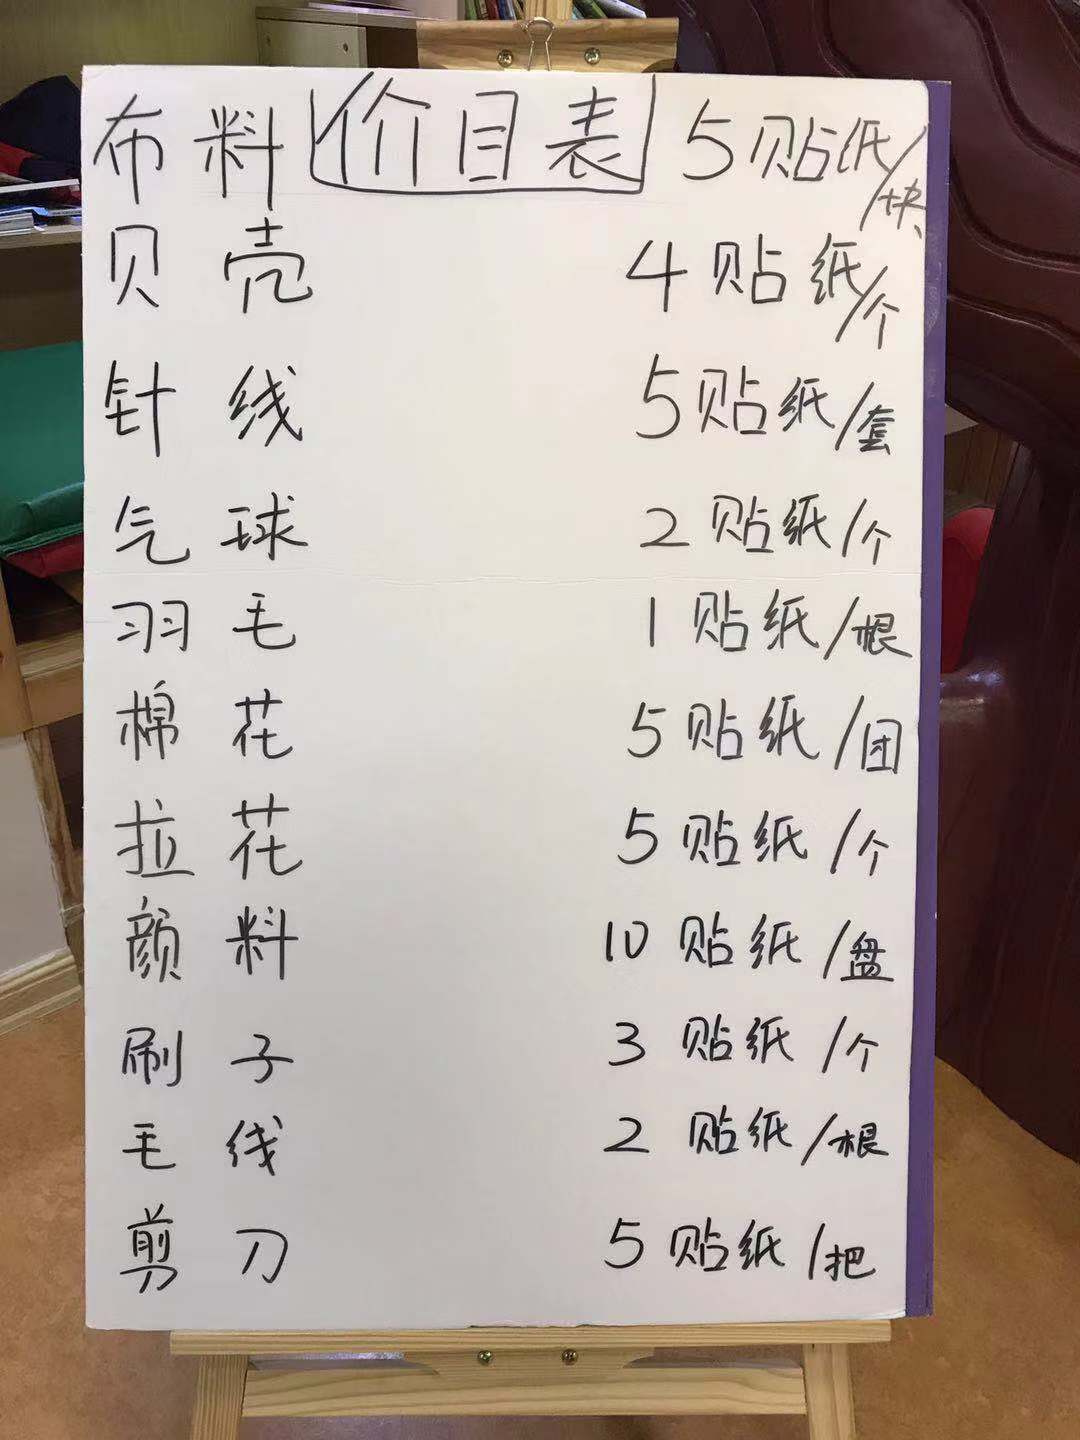 布料 价目表 5贴纸/块
贝壳 4贴纸/个
针线 5贴纸/套
气球 2贴纸/个
羽毛 1贴纸/根
棉花 5贴纸/团
拉花 5贴纸/个
颜料 10贴纸/盘
刷子 3贴纸/个
毛线 2贴纸/根
剪刀 5贴纸/把